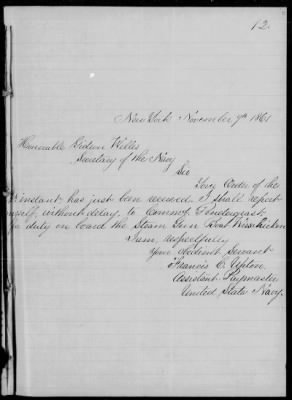 12.
New York November 9th 1861
Honorable Gideon Welles
Secretary of the Navy
Sir
Your Order of the
instant has just been received. I shall report
myself, without delay, to Commo. Pendergast
for duty on board the Steam Gun Boat Wissahickon
I am, respectfully
Your Obedient Servant
Francis C. Upton
Assistant Paymaster
United State Navy.